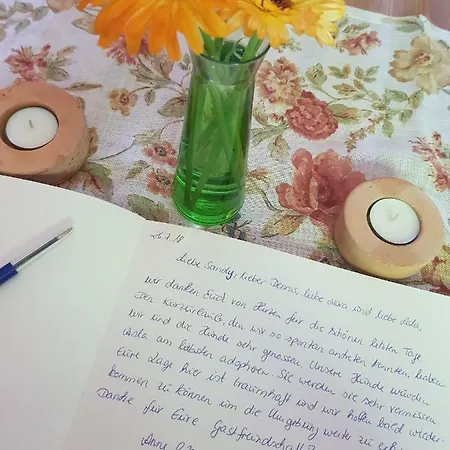 26.7.18
Liebe Sandy, lieber Dennis, liebe Nora und liebe Ada,
wir danken Euch von Herzen für die schönen letzten Tage.
Den Kurzurlaub, den wir so spontan antreten konnten, haben
wir und die Hunde sehr genossen. Unsere Hunde würden
am liebsten adoptieren. Sie werden sie sehr vermissen.
Eure Lage hier ist traumhaft und wir hoffen bald wieder
kommen zu können um die Umgebung weiter zu
Danke für Eure Gastfreundschaft
Anne